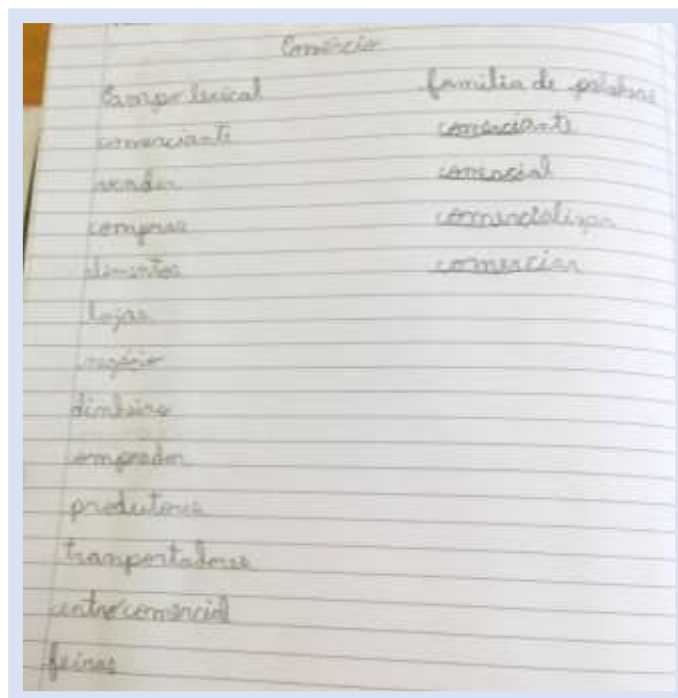 Comércio
Campo lexical
comerciante
vender
compras
alimentos
lojas
negócio
dinheiro
comprador
produtores
tranportadores
centro comercial
feiras
família de palavras
comerciante
comercial
comercializar
comerciar